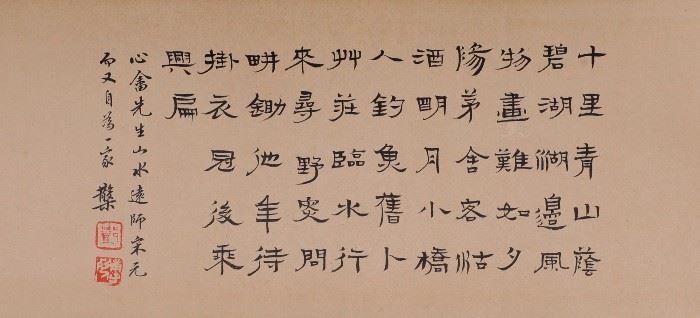 十里青山蔭
碧湖湖邊風
物畫難如夕
陽茅舍客沽
酒明月小橋
人釣魚舊卜
艸莊臨水竹
來尋野叟問
畊鋤他年待
掛衣冠後乘
興扁
心畬先生山水遠師宋元
而又自為一家